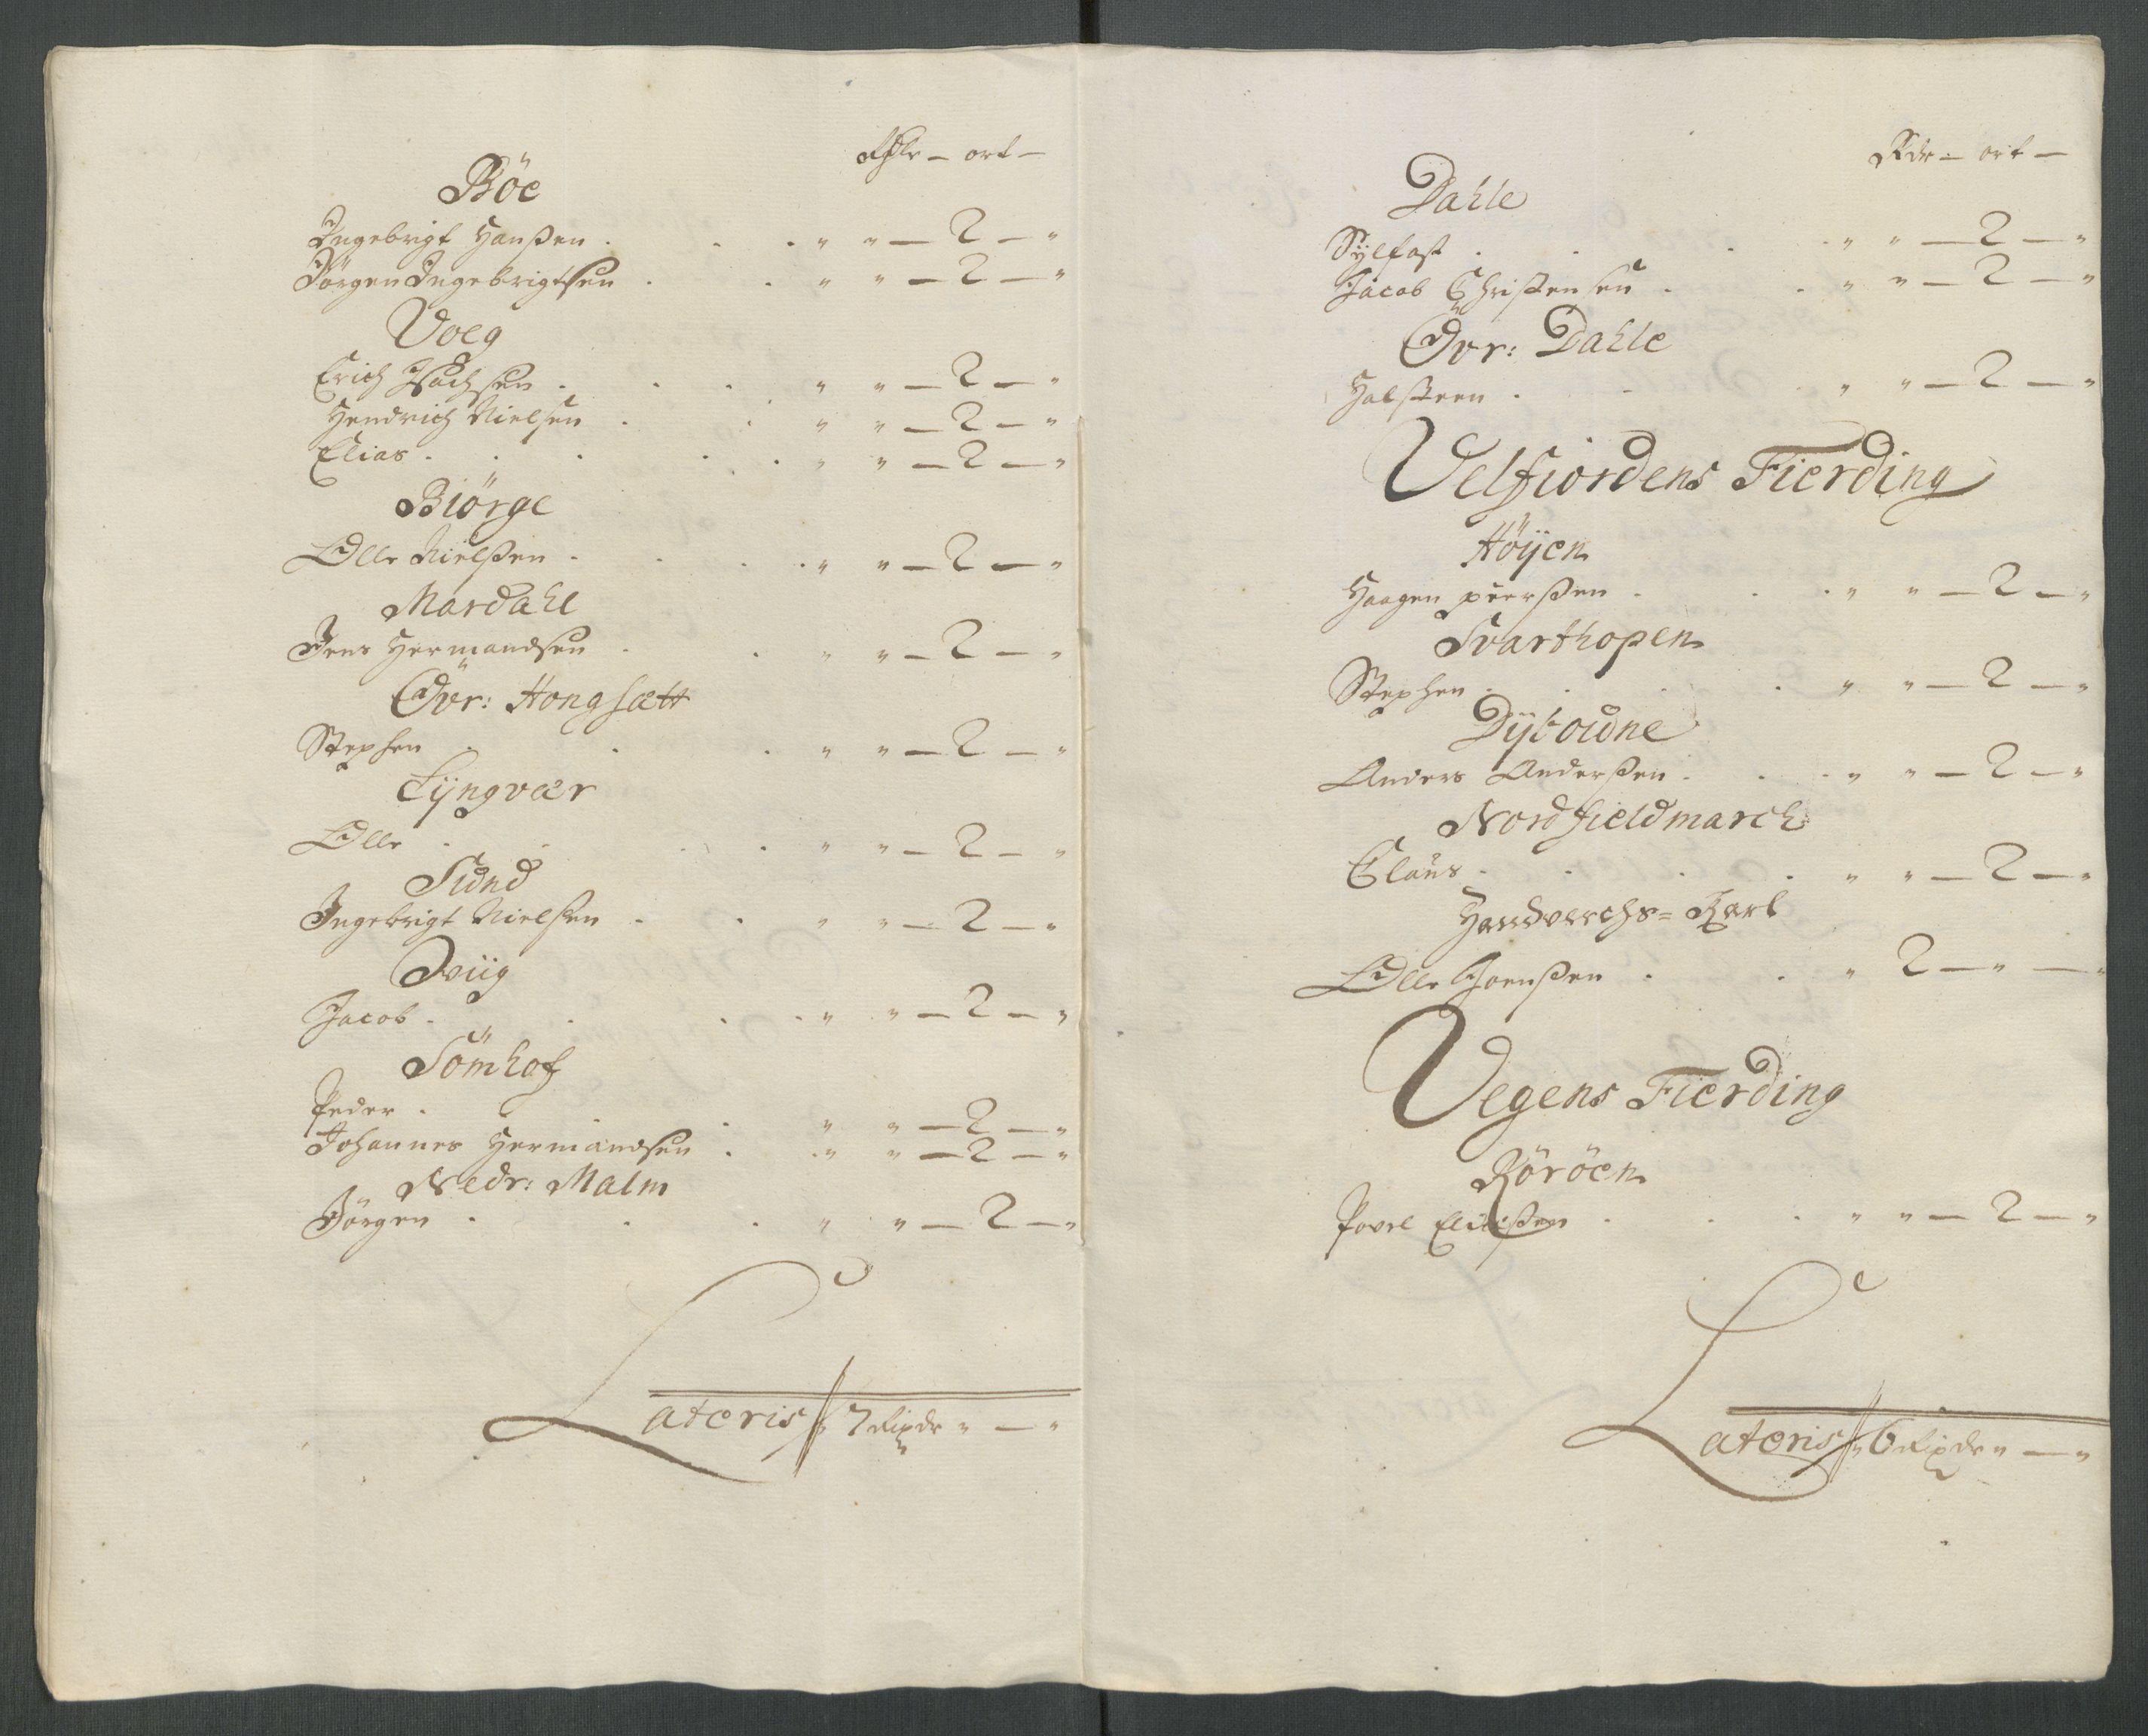 Rdlr — ort —
Böe
Ingebrigt Hanßen . . . " " — 2 — "
Jörgen Ingebrigtsen . . " " — 2 — "
Voeg
Erich Isachsen . . . " " — 2 — "
Hendrich Nielsen . . " " — 2 — "
Elias . . . . . " " — 2 — "
Biörge
Olle Nielßen . . . . " " — 2 — "
Mardahl
Jens Hermandsen . . " " — 2 — "
Övr: Hongsætt
Stephen . . . " " — 2 — "
Lÿngvær
Olle . . . . " " — 2 — "
Sund
Ingebrigt Nielsen . . " " — 2 — "
Qviig
Jacob . . . . " " — 2 — "
Sömhof
Peder . . . " " — 2 — "
Johannes Hermandsen . . " " — 2 — "
Nedr: Malm
Jörgen . . . " " — 2 — "
Lateris " 7 Rixdr " — "
Rdr — ort —
Dahle
Sÿlfast . . . . " " — 2 — "
Jacob Christensen . . " " — 2 — "
Övr: Dahle
Halsteen . . . " " — 2 — "
Velfiordens Fierding
Höÿen
Haagen peerßen . . . " " — 2 — "
Svarthopen
Stephen . . . . " " — 2 — "
Dÿboudne
Anders Anderßen . . . " " — 2 — "
Nordfieldmarch
Claus . . . . " " — 2 — "
Handverchs= Karl
Olle Joenßen . . " 2 — " — "
Vegens Fierding
Röröen
Povel Eließen . . . " " — 2 — "
Lateris " 6 Rixdr " — "